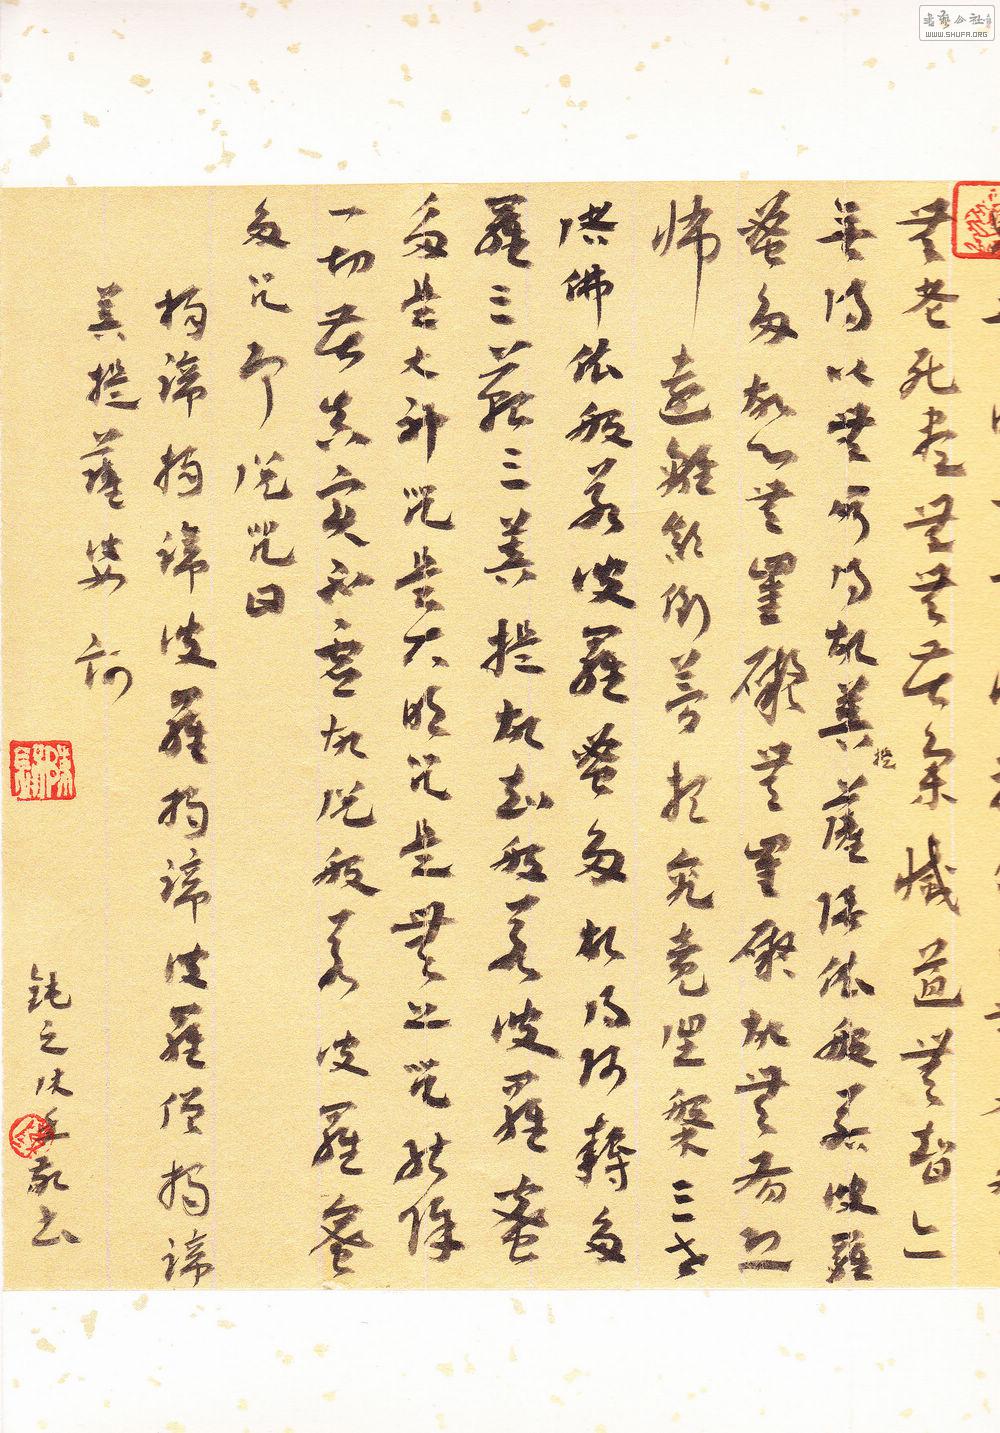 無老死盡無無苦集滅道無智亦
無得以無所得故菩提薩埵依般若波羅
蜜多故心無罣礙無罣礙故無有恐
怖遠離顛倒夢想究竟涅槃三世
諸佛依般若波羅蜜多故得阿耨多
羅三藐三菩提故知般若波羅蜜
多是大神咒是大明咒是無上咒能除
一切苦真實不虛故說般若波羅蜜
多咒即說咒曰
揭諦揭諦波羅揭諦波羅僧揭諦
菩提薩婆訶
鈍之沐手敬書
WWW.SHUFA.ORG